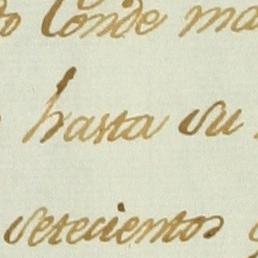 Conde
hasta su
setecientos